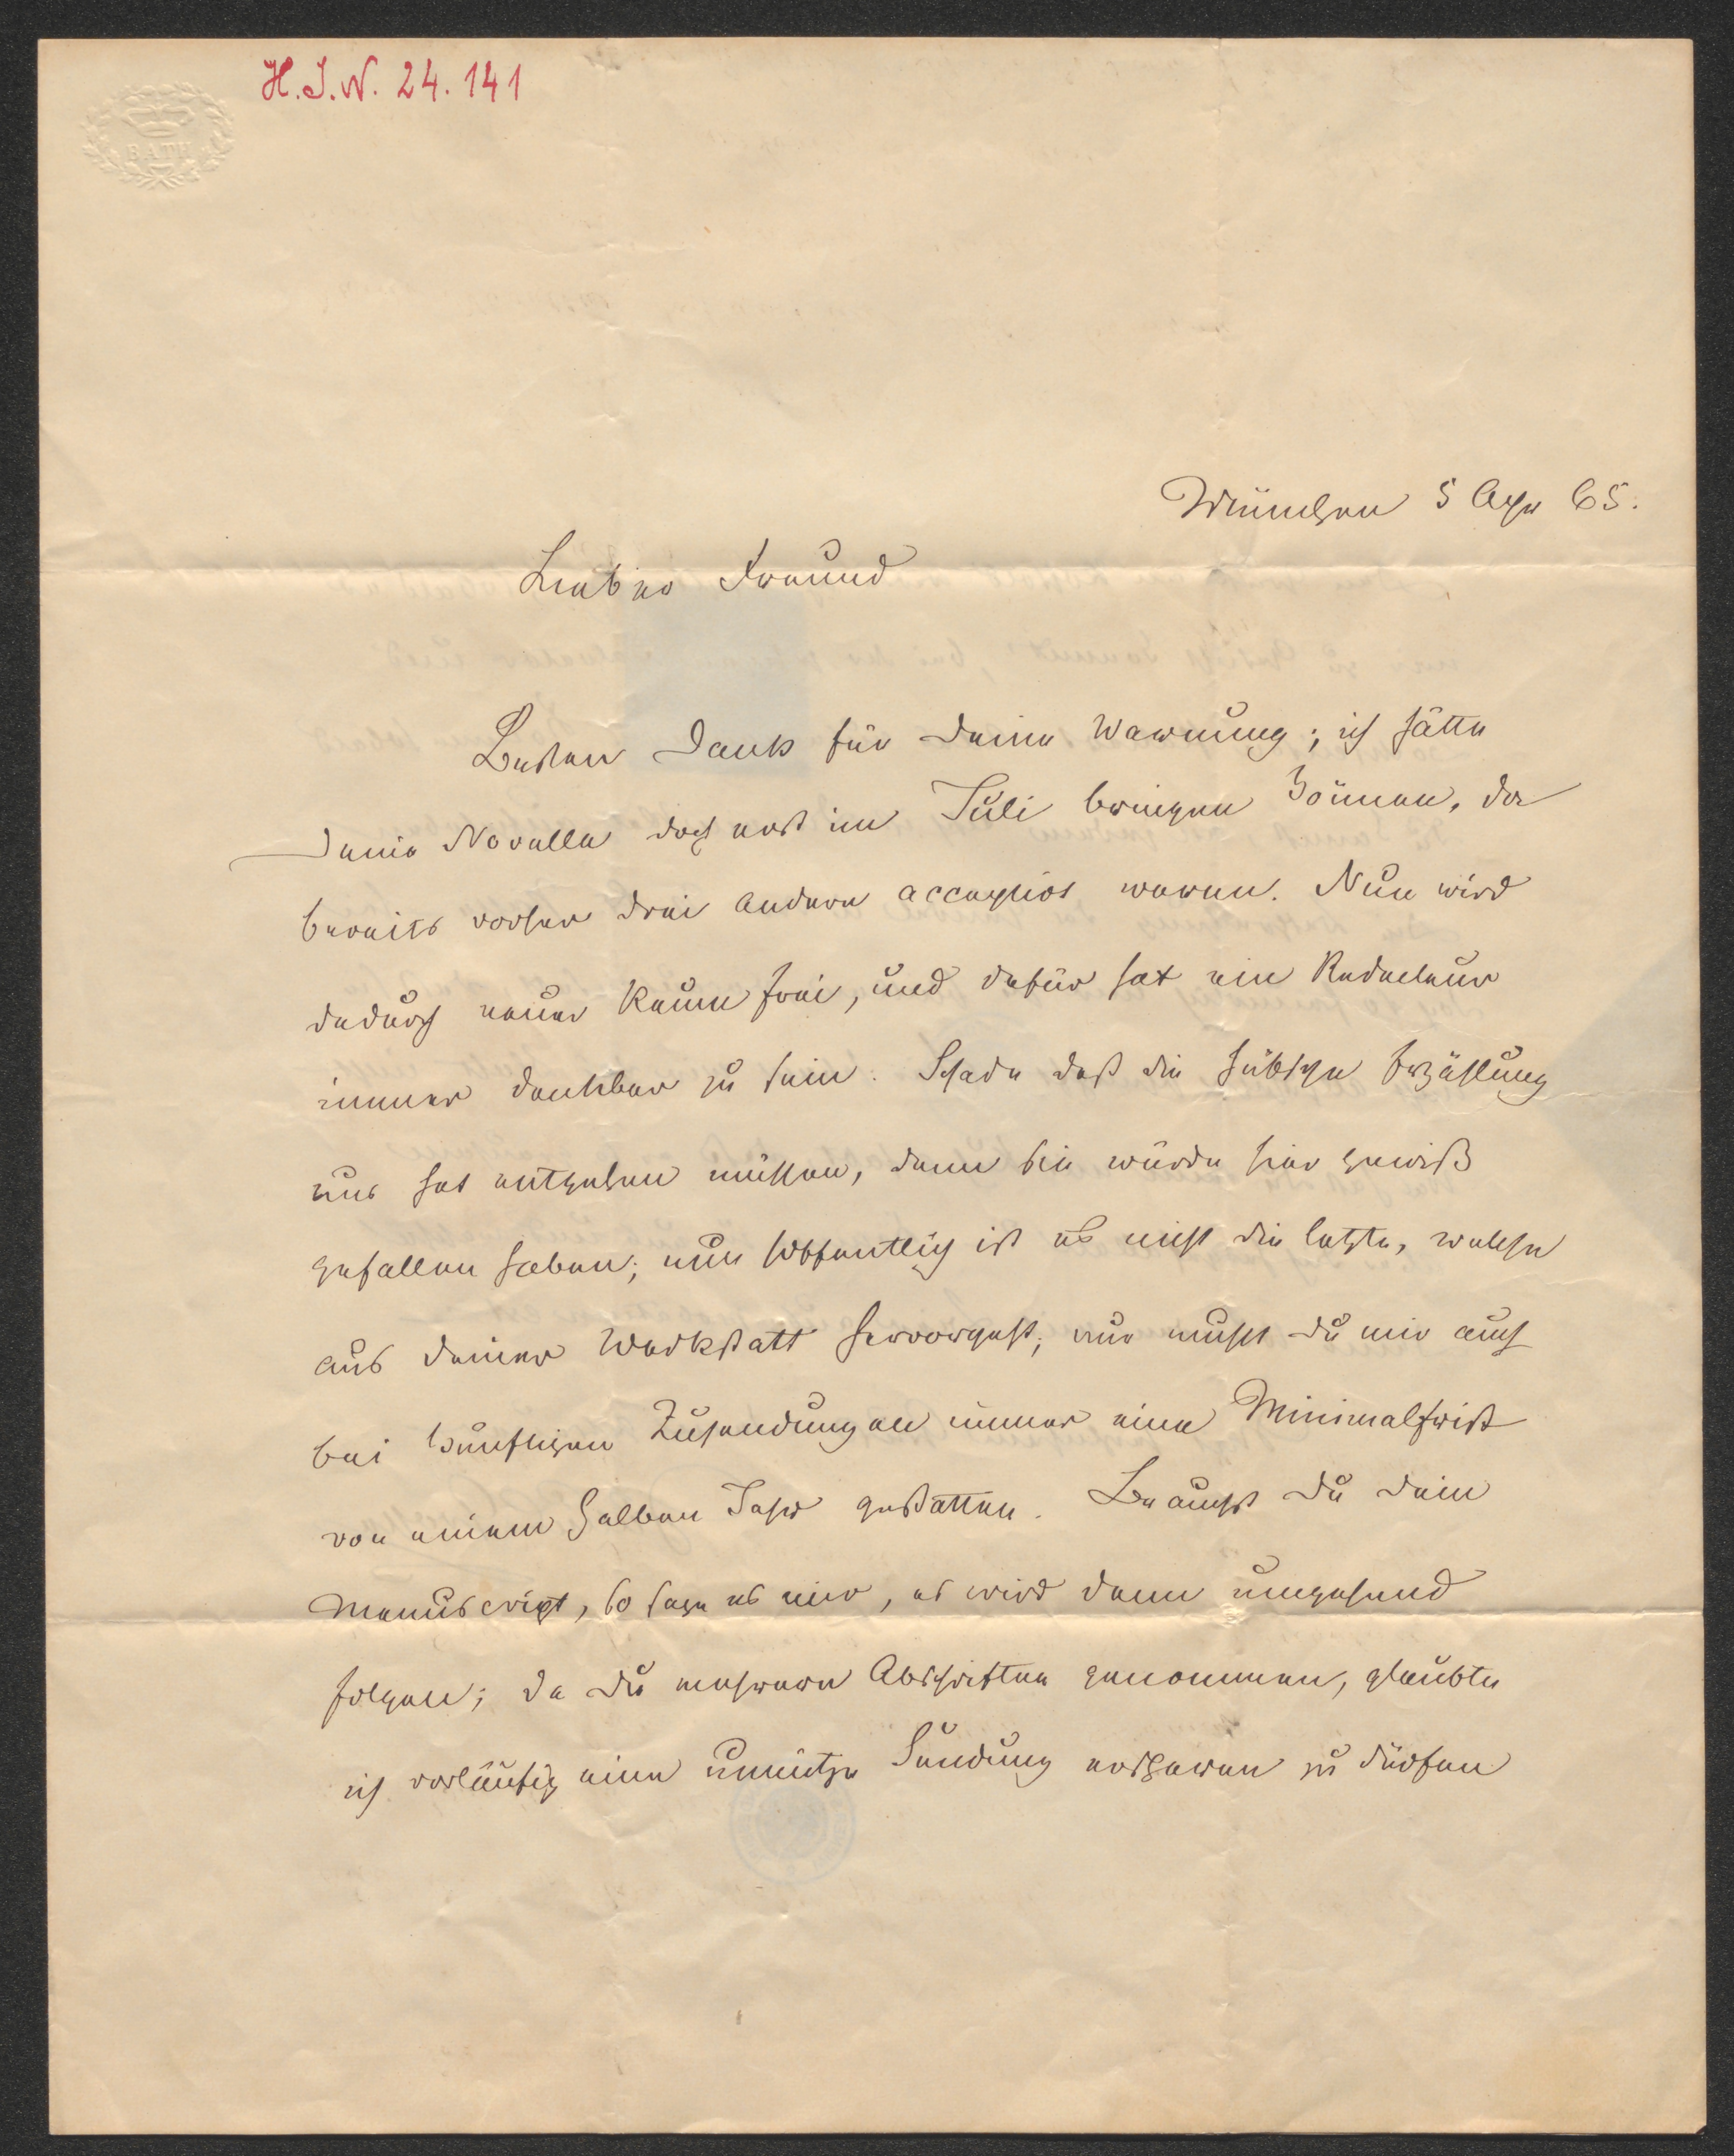 H.I.N. 24.141
BATH
München 5 Apr 65.
Lieber Freund
Besten Dank für Deine Warnung; ich hätte
Deine Novelle doch erst im Juli bringen können, da
bereits vorher drei andere acceptirt waren. Nun wird
dadurch neuer Raum frei, und dafür hat ein Redacteur
immer dankbar zu sein. Schade daß die hübsche Erzählung
uns hat entgehen müssen, denn sie würde hier gewiß
gefallen haben; nun hoffentlich ist es nicht die letzte, welche
aus Deiner Werkstatt hervorgeht; nur mußt Du mir auch
bei künftigen Zusendungen immer eine Minimalfrist
von einem halben Jahr gestatten. Brauchst Du Dein
Manuscript, so sage es mir, es wird dann umgehend
folgen; da Du mehrere Abschriften genommen, glaubte
ich vorläufig eine unnütze Sendung ersparen zu dürfen